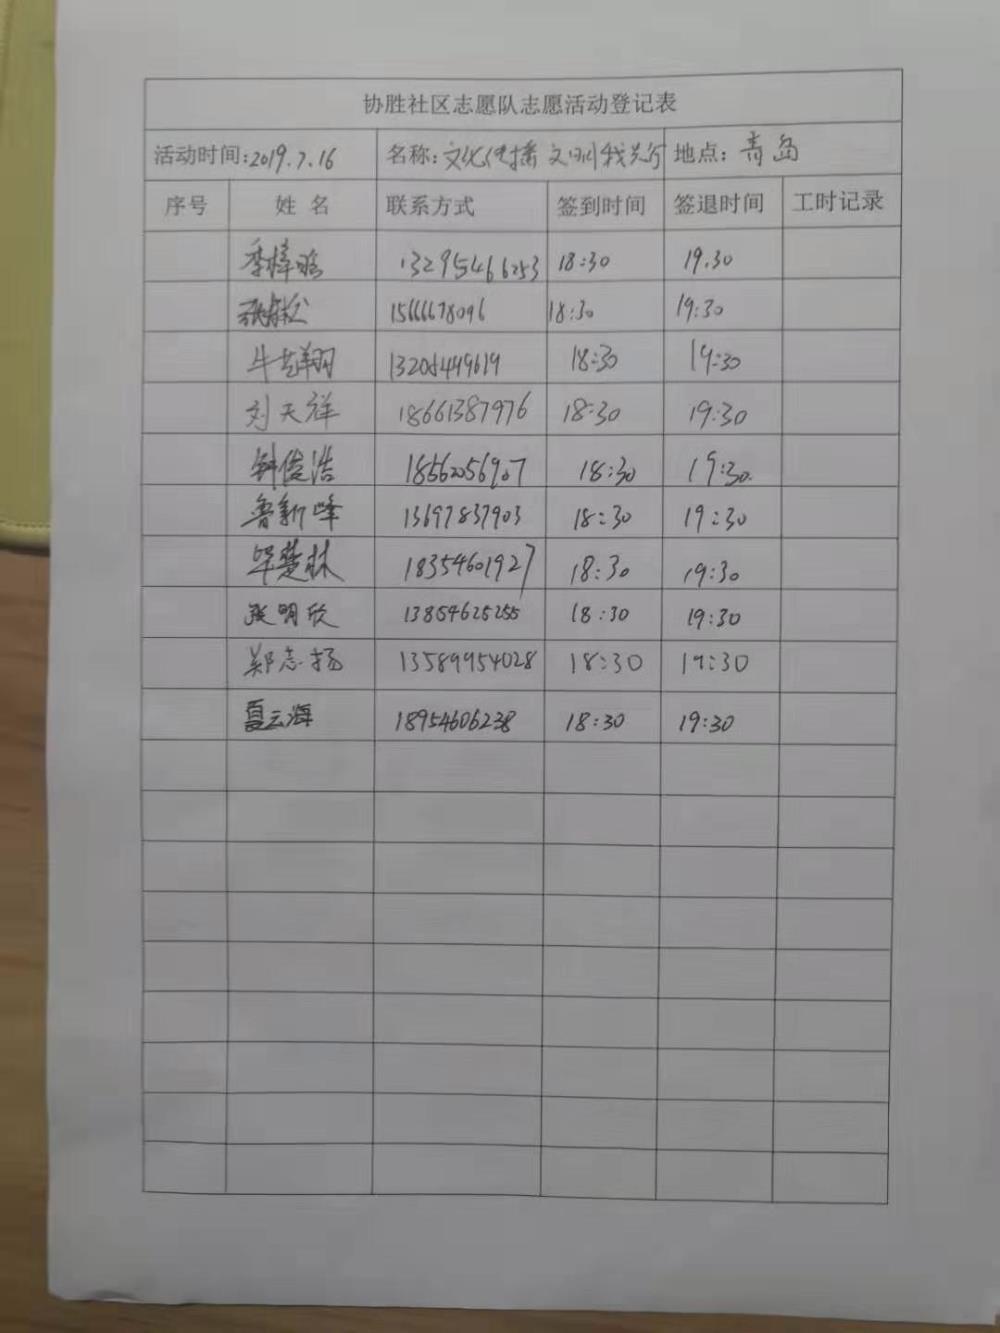 协胜社区志愿队志愿活动登记表
活动时间:2019.7.16 名称:文化传播 文明我先行 地点:青岛
序号 姓名 联系方式 签到时间 签退时间 工时记录
季梓晗 13295466253 18:30 19.30
15666678096 18:30 19:30
18:30 19:30
刘天祥 18661387976 18:30 19:30
钟俊浩 18562056907 18:30 19:30.
鲁新峰 13697837903 18:30 19:30
毕楚林 18354601927 18:30 19:30
张明欣 13854625255 18:30 19:30
郑志扬 13589954028 18:30 19:30
夏云海 18954606238 18:30 19:30